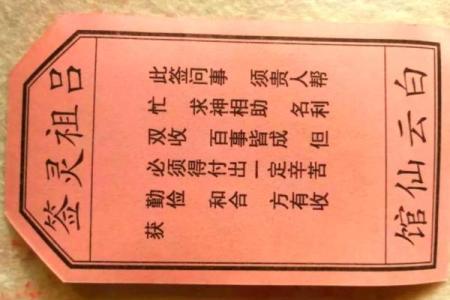 吕祖灵签
此签问事 须贵人帮
忙 求神相助 名利
双收 百事皆成 但
必须得付出一定辛苦
勤俭 和合 方有收
获
白云仙馆